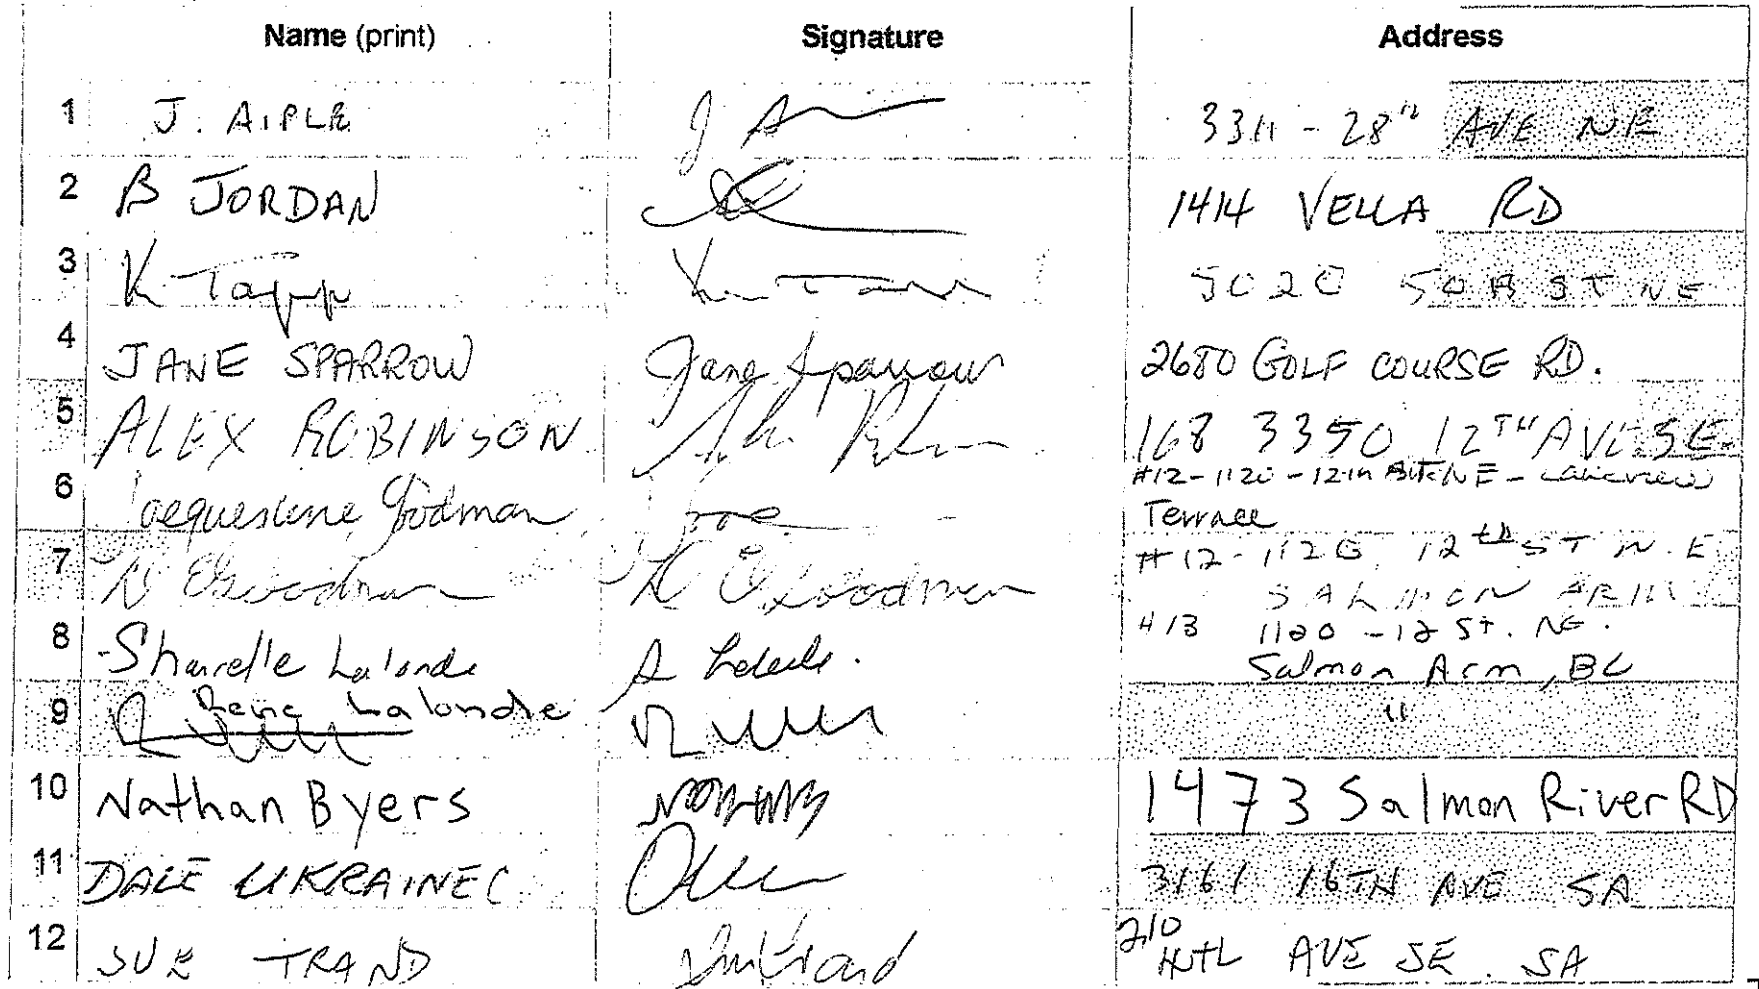 Name (print) Signature Address
1 J. AIPLE J A 3311 - 28th AVE NE
2 B JORDAN 1414 VELLA RD
3 K Tapp K Tapp 5020 50B ST NE
4 JANE SPARROW Jane Sparrow 2680 GOLF COURSE RD.
5 ALEX ROBINSON 168 3350 12TH AVE SE
6 Jacquesline Godman #12-1120-12th NE - Lakeview
Terrace
7 Goodman Goodman #12-1120 12th ST N.E
SALMON ARM
8 Sharelle Lalonde #13 1120 - 12 St. NE.
Salmon Arm, BC
9 Rene Lalonde "
10 Nathan Byers 1473 Salmon River RD
11 DALE UKRAINEC 3161 16TH AVE SA
12 SUE TRAND 210
AVE SE. SA